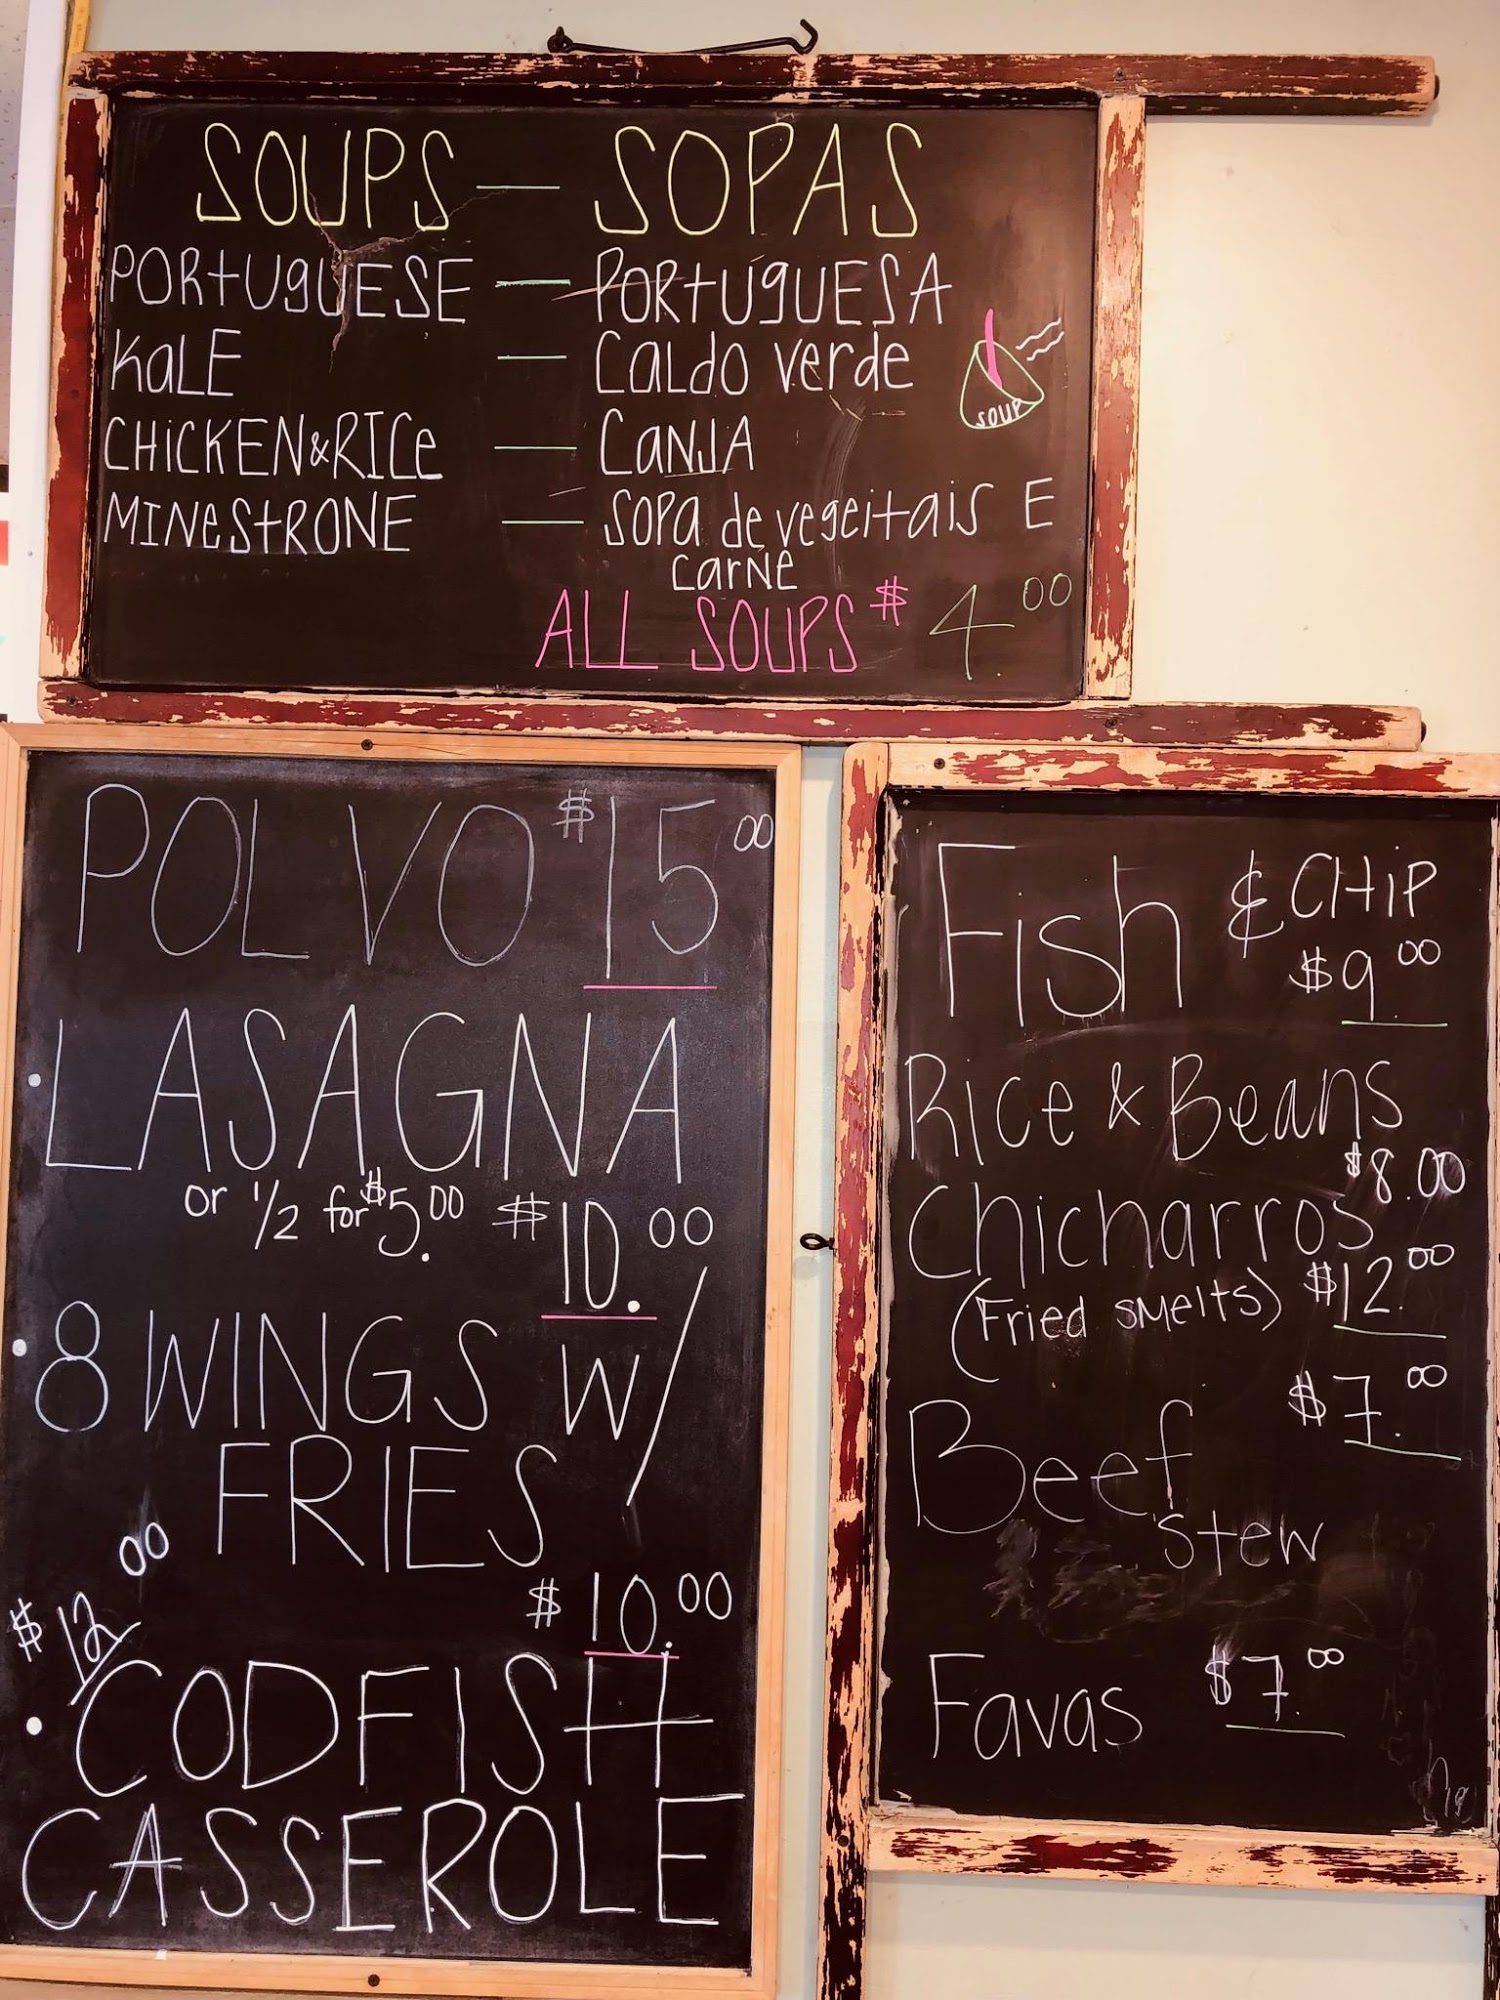 SOUPS — SOPAS
PORtUgUESE — PORtUgUESA
KaLE — CaLdO verde
CHiCKEN&RICe — CaNJA
MINeStRONE — SOPa de vegeitais E
carNe
SOUP
ALL SOUPS $ 4.00
POLVO $15 00
• LASAGNA
or 1/2 for $5.00 $10.00
• 8 WINGS W/
FRIES
$10.00
$12 00
• CODFISH
CASSEROLE
Fish & CHiP
$9 00
Rice & Beans
$8.00
Chicharros
(Fried sMelts) $12.00
$7.00
Beef
Stew
Favas $7.00